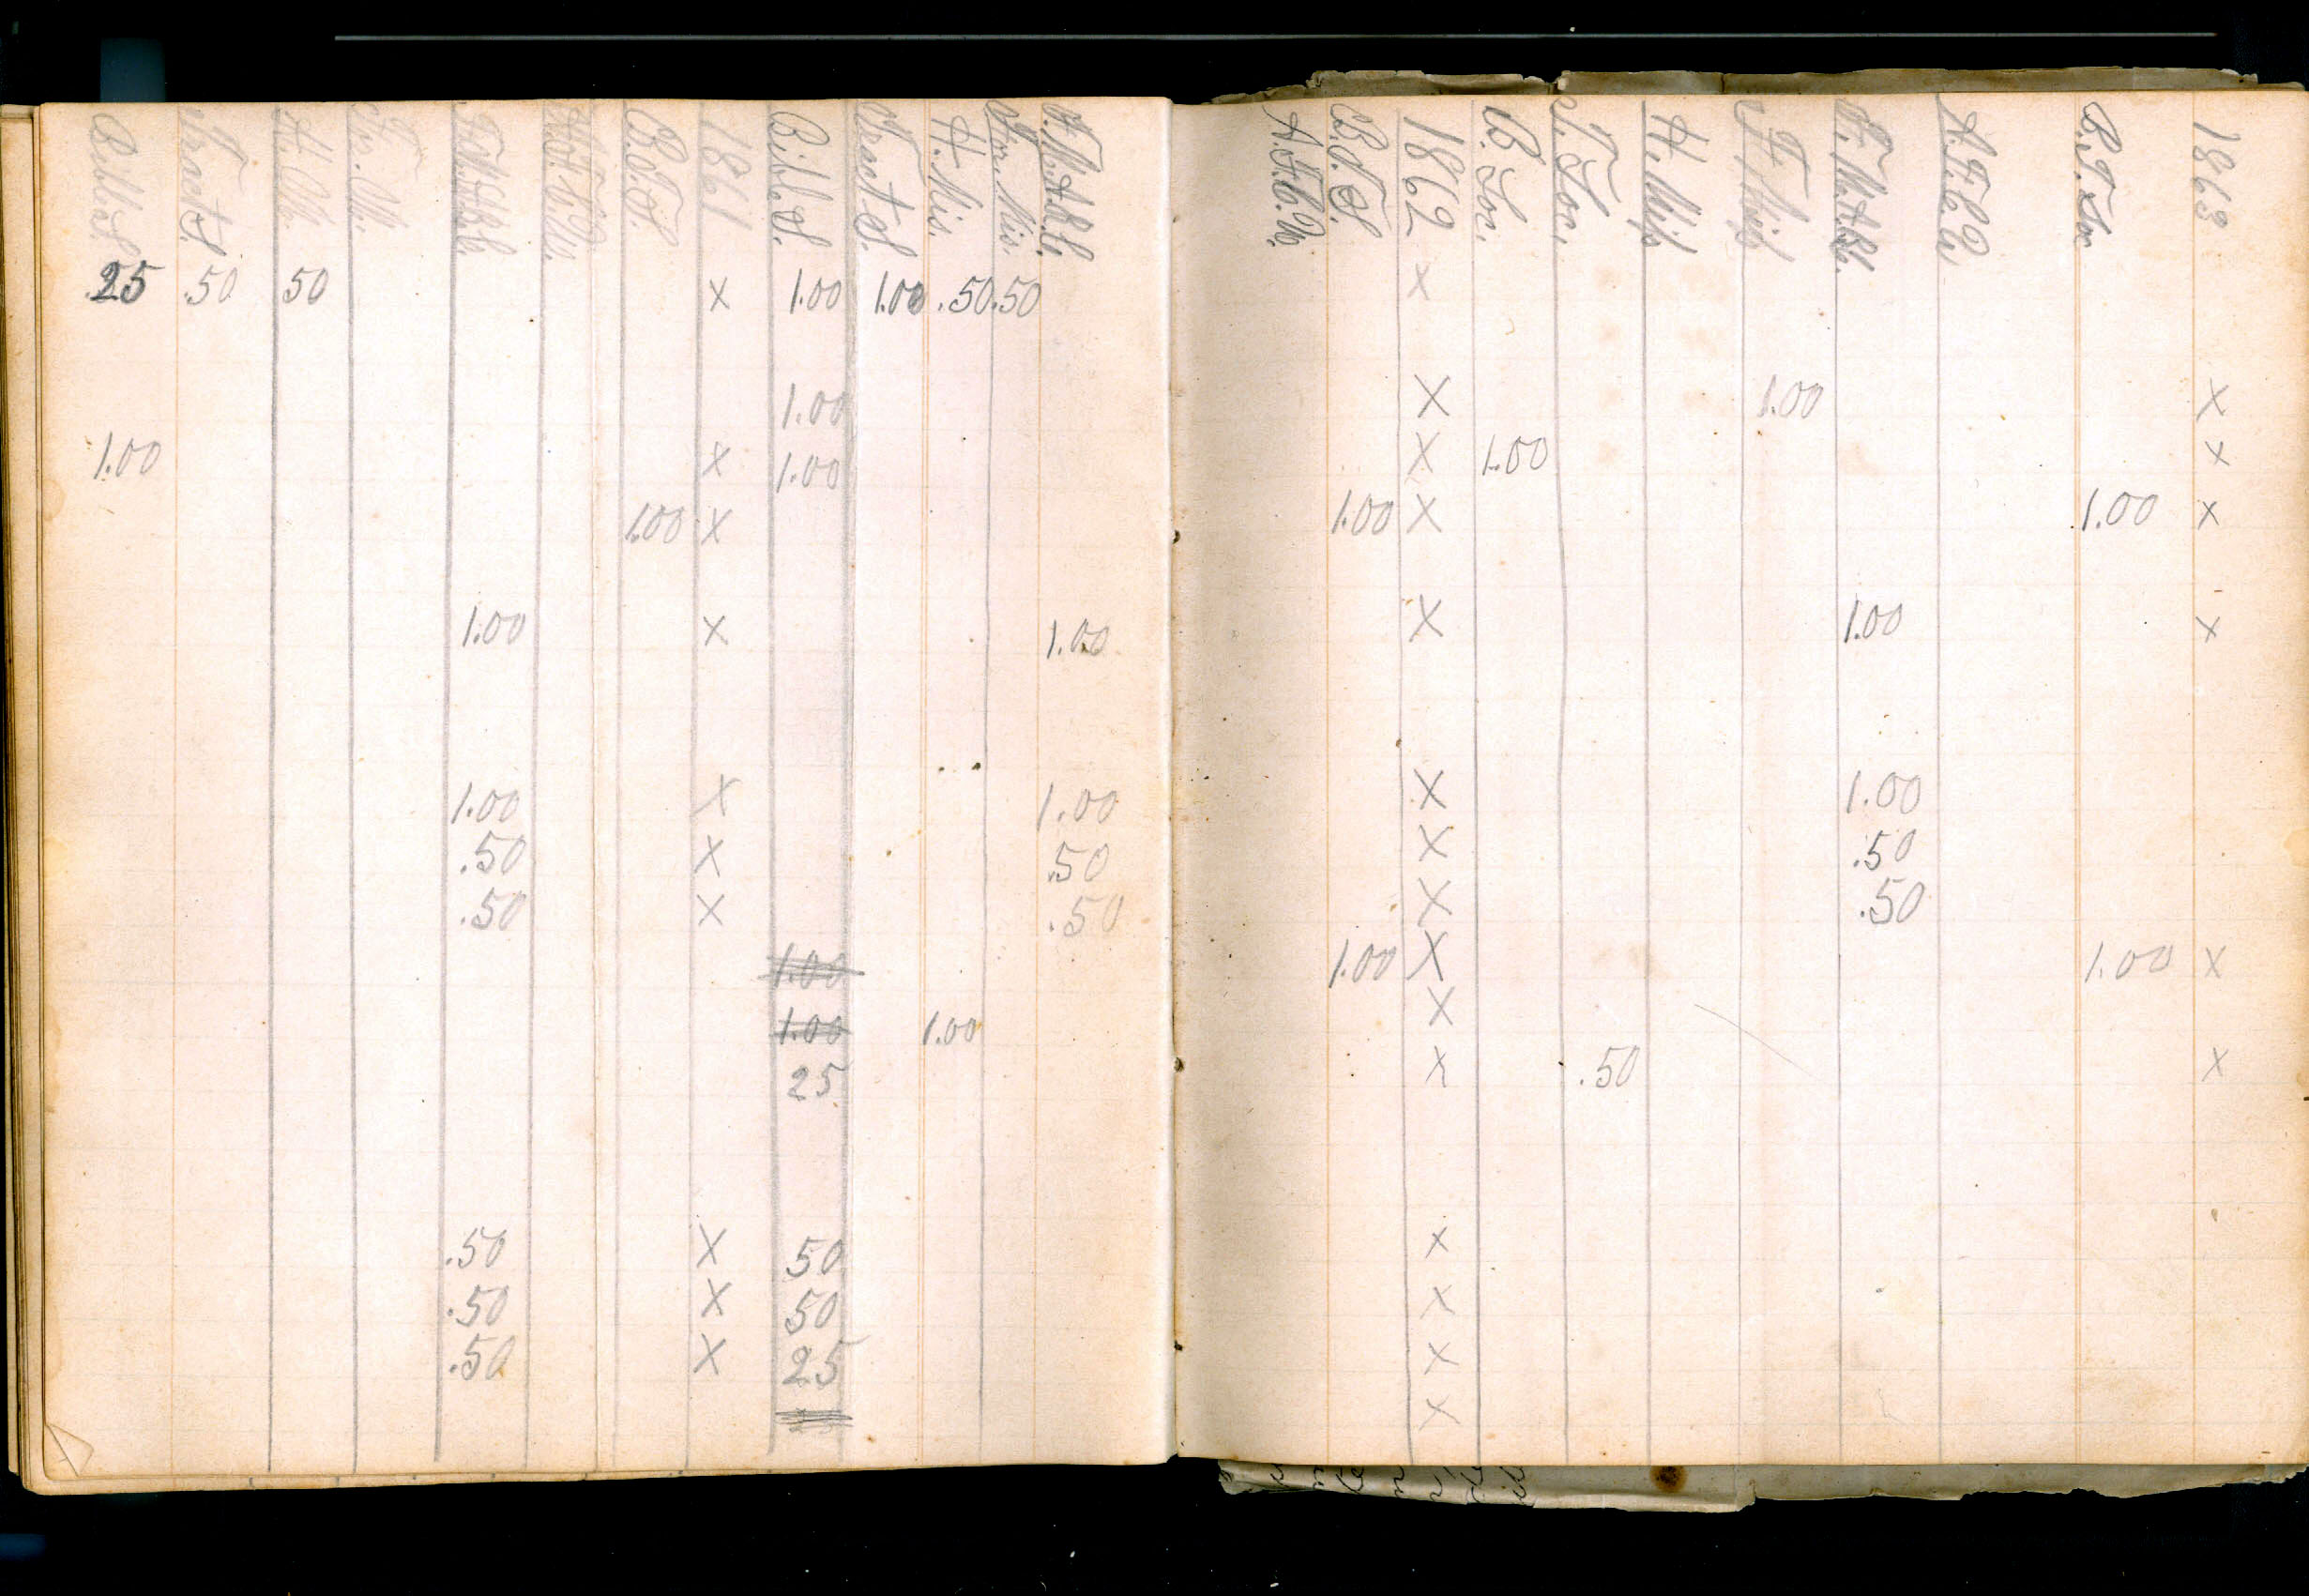 Bibl. S. Tract S. H. M. For. M. F.M.A.B.C. A.F.C.U. B.T.S. 1861 Bibl. S. Tract S. H. Mis. For. Mis. F.M.A.B.C.
.25 .50 50 x 1.00 1.00 .50 .50
1.00
1.00 x 1.00
1.00 x
1.00 x 1.00
1.00 x 1.00
.50 x .50
.50 x .50
1.00
1.00 1.00
25
.50 x 50
.50 x 50
.50 x 25
A.F.C.U. B.T.S. 1862 B. Soc. T. Soc. H. Miss F Miss F.M.A.B.C. A.F.C.U. B.T. Soc 1863
x
x 1.00 x
x 1.00 x
1.00 x 1.00 x
x 1.00 x
x 1.00
x .50
x .50
1.00 x 1.00 x
x
x .50 x
x
x
x
x